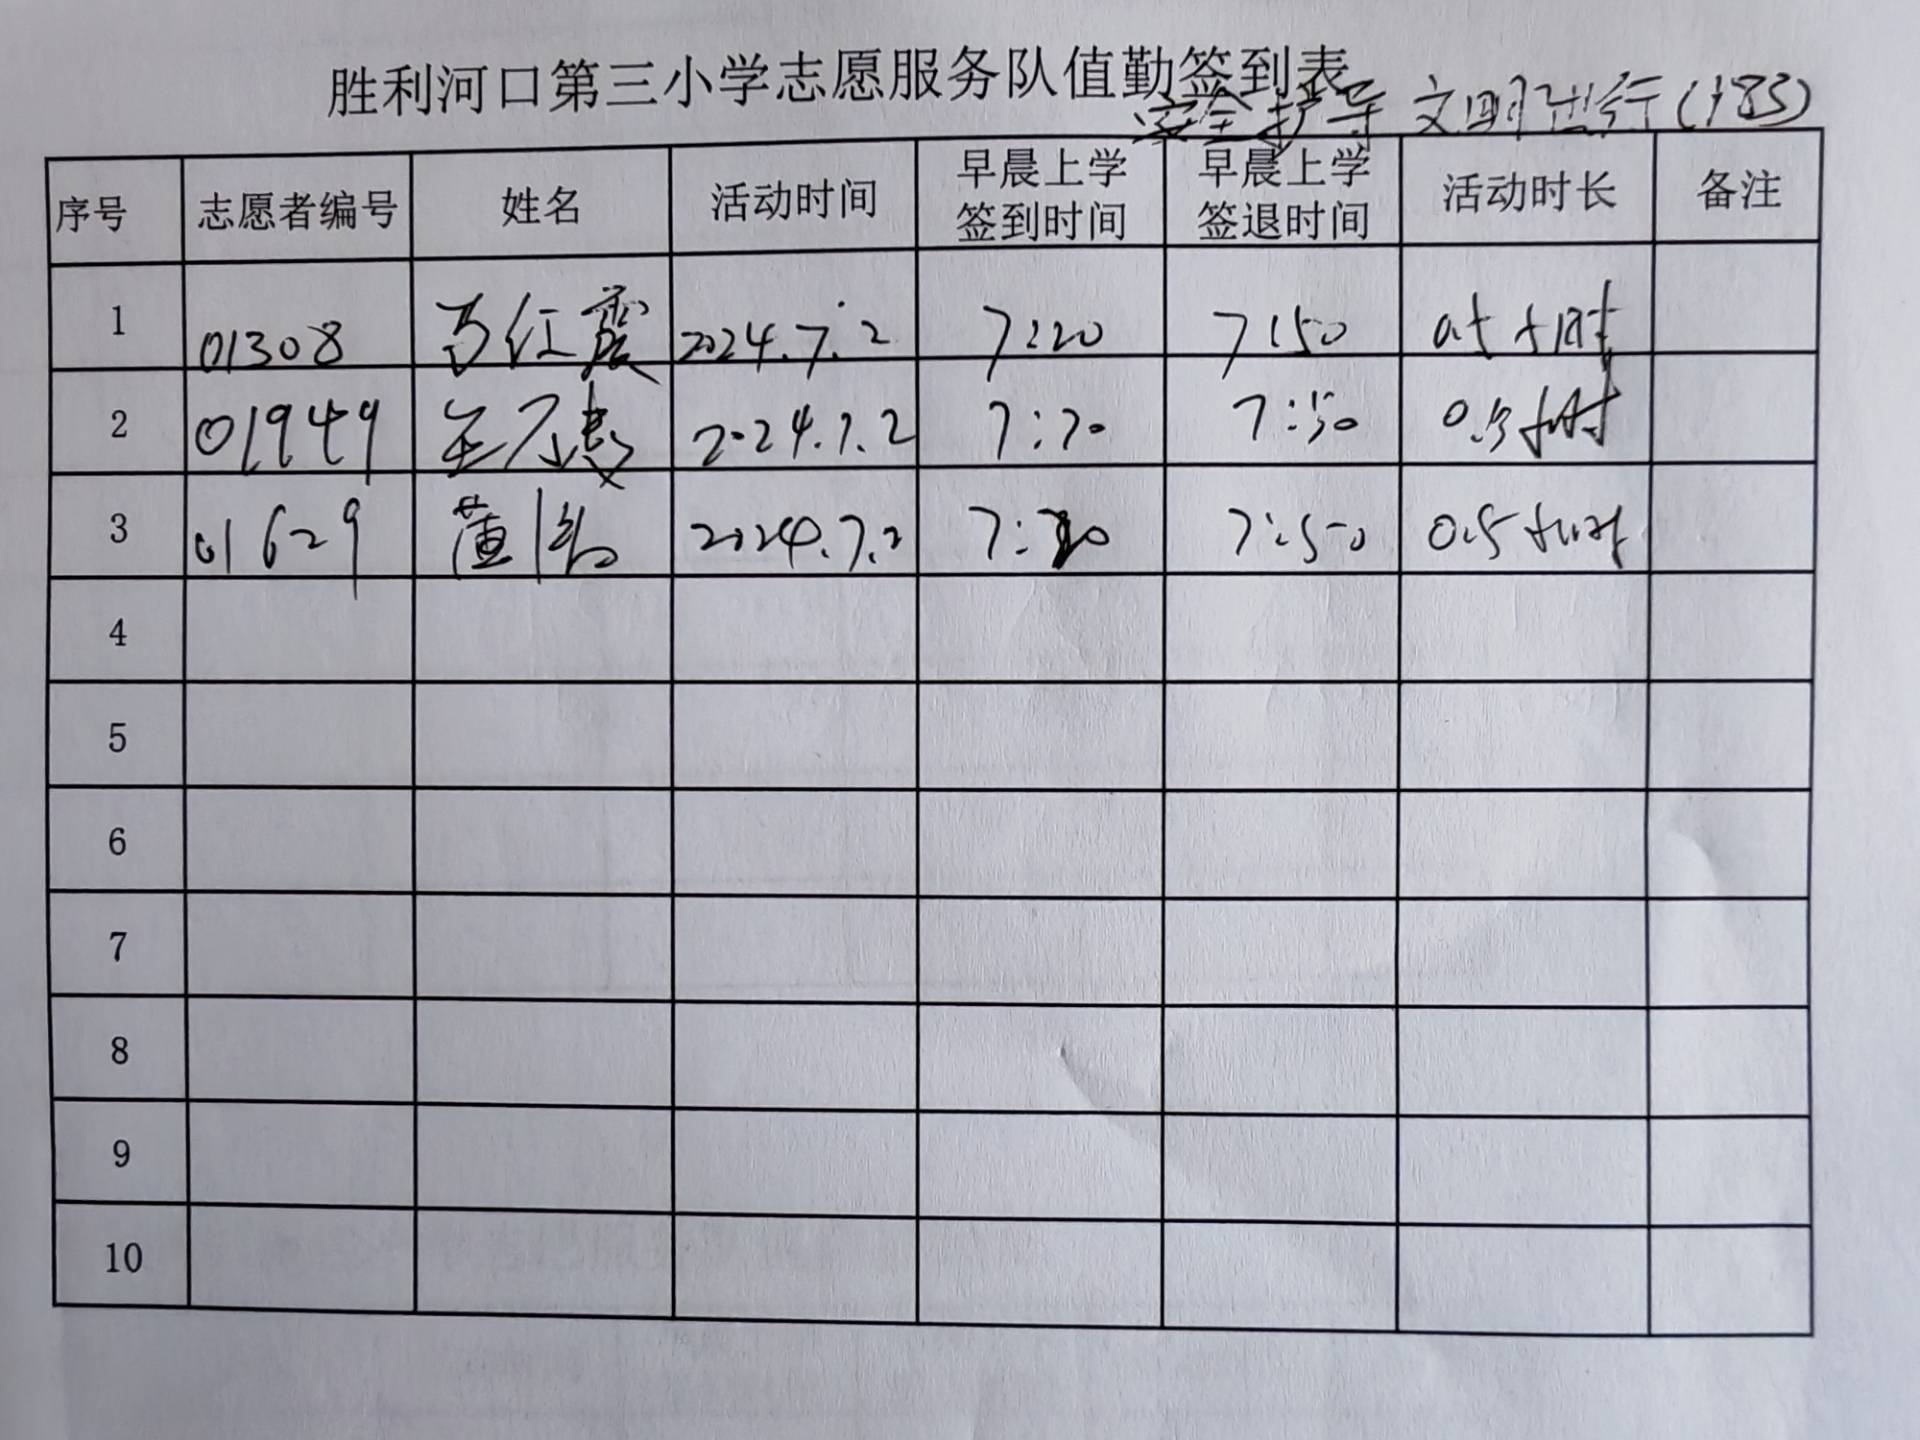 胜利河口第三小学志愿服务队值勤签到表
安全护导 文明随行(183)
序号 志愿者编号 姓名 活动时间 早晨上学签到时间 早晨上学签退时间 活动时长 备注
1 01308 红霞 2024.7.2 7:20 7:50 0.5小时
2 01949 2024.7.2 7:20 7:50 0.5小时
3 01629 董 2024.7.2 7:20 7:50 0.5小时
4
5
6
7
8
9
10